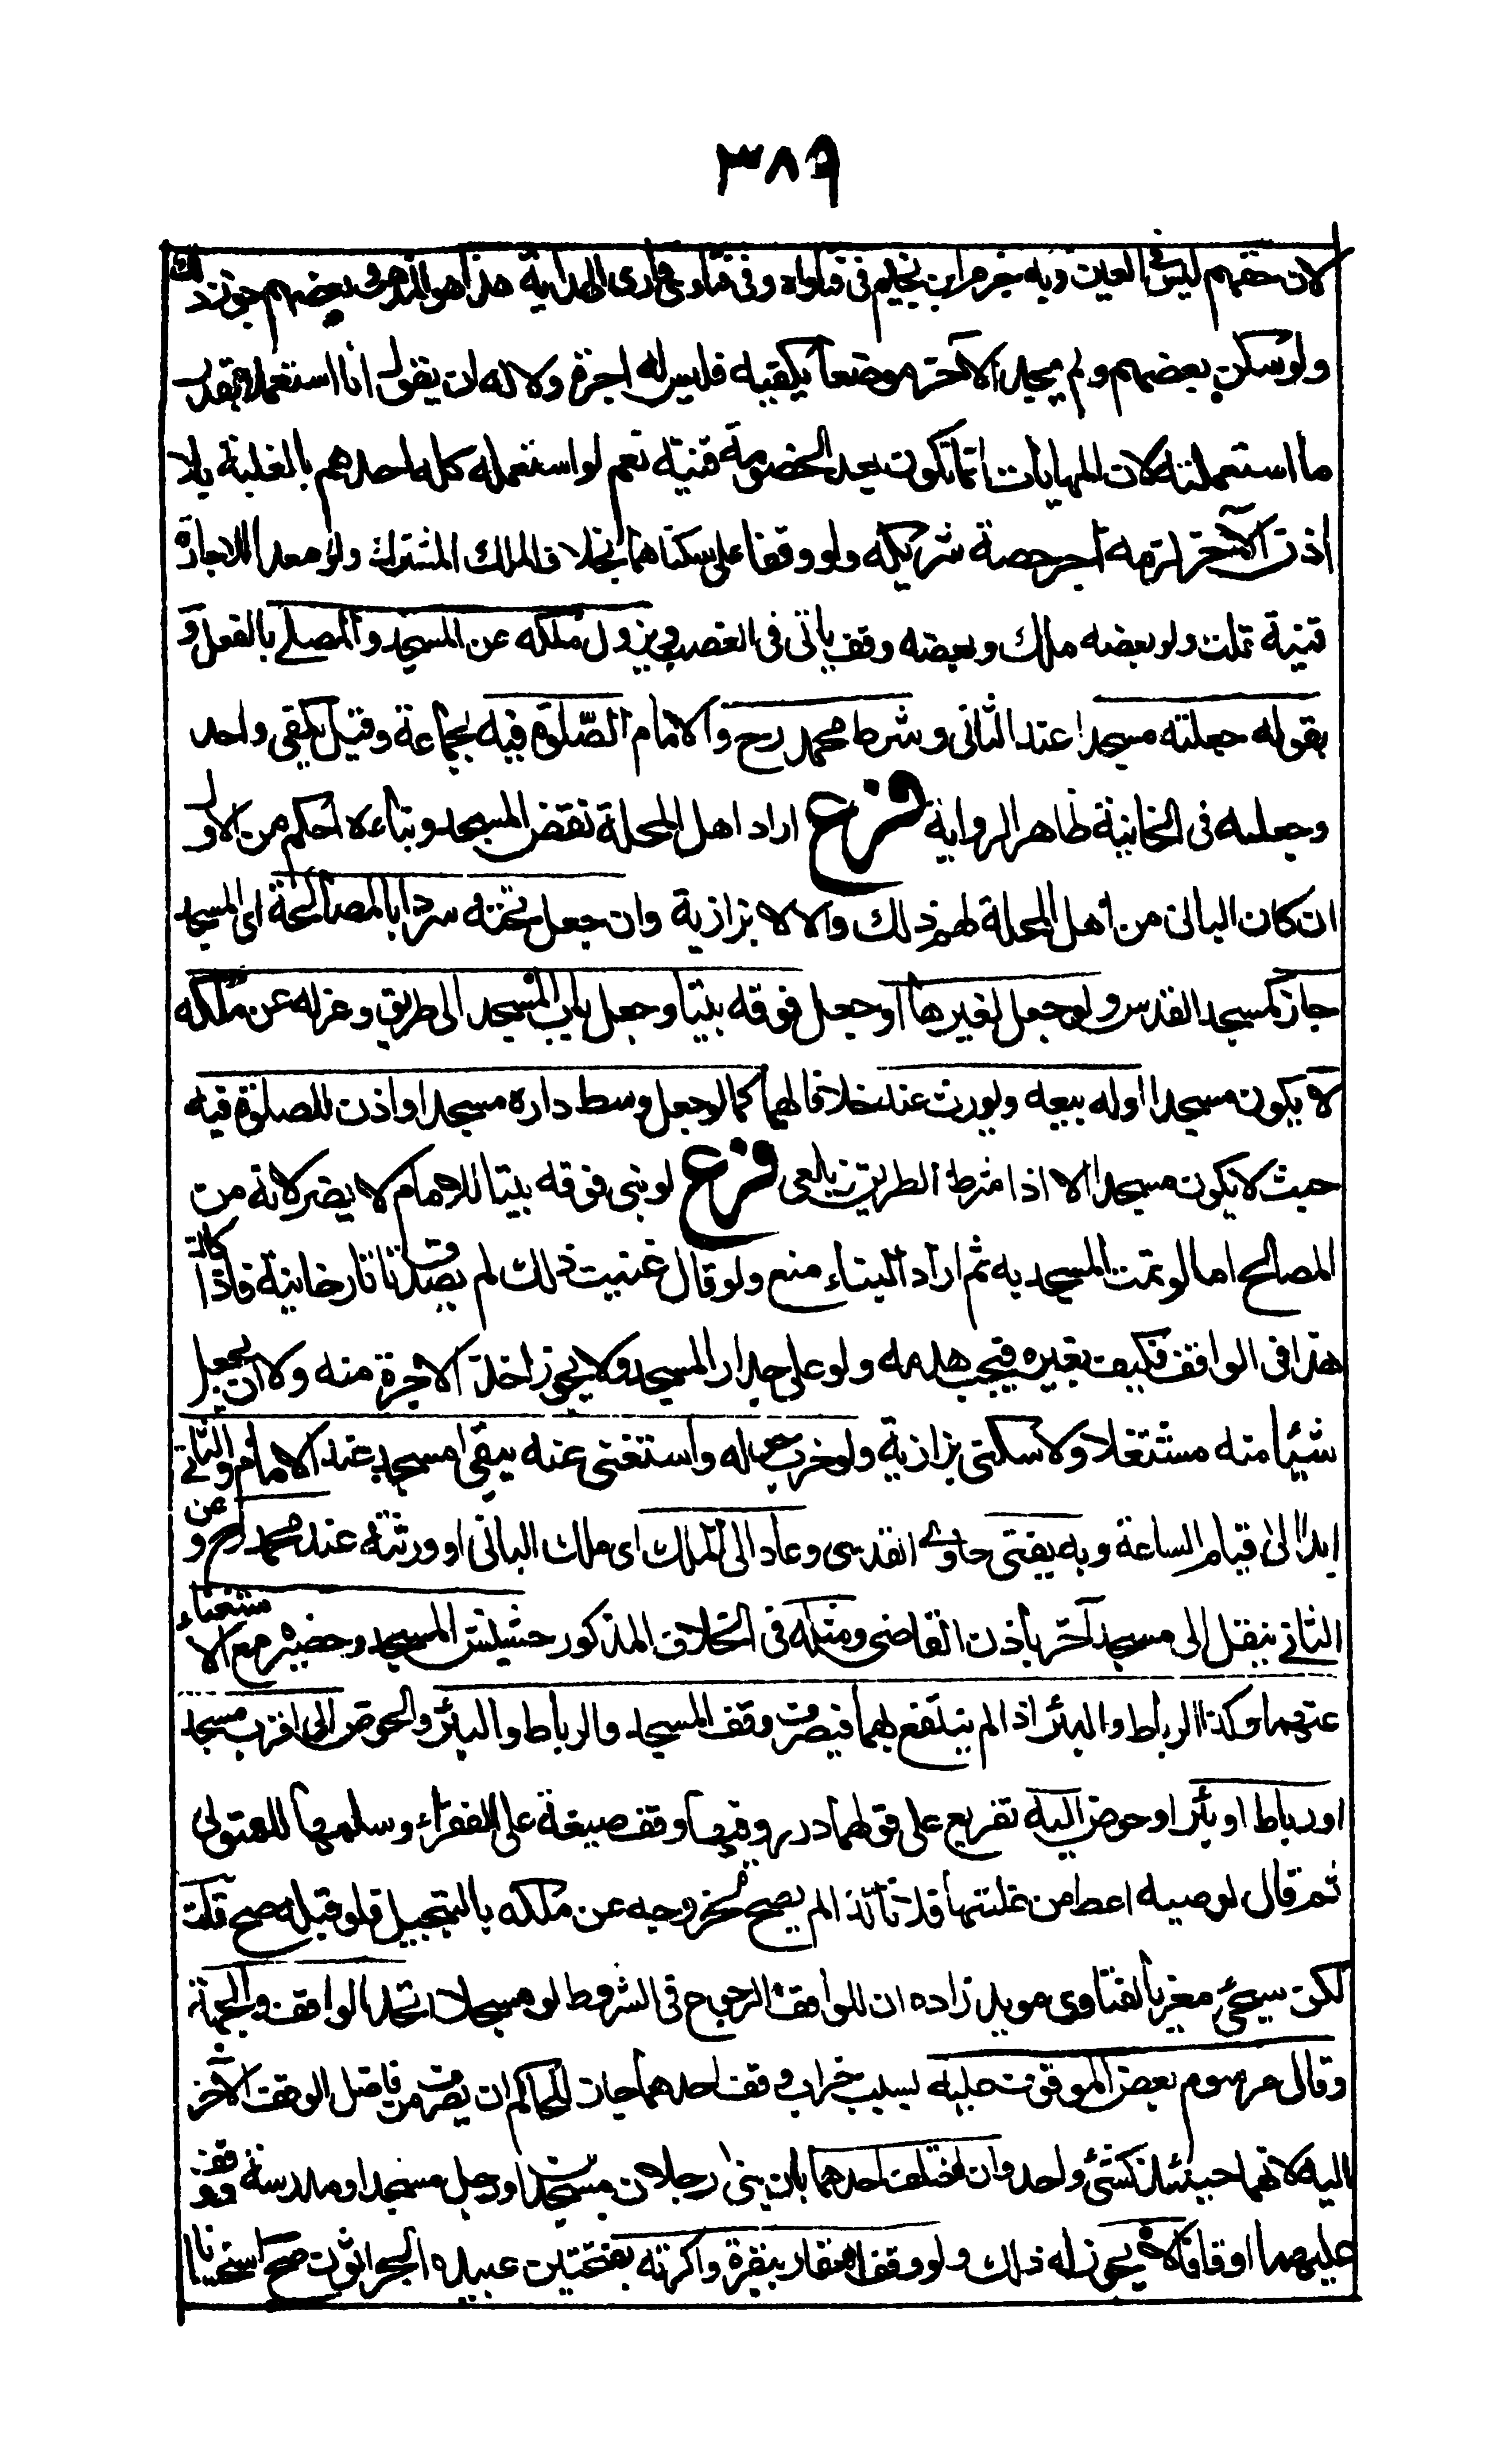 ٣٨٩
لان حقهم ليس في العين وبه جزم ابن نجيم فى فتاواه وفى فتاوى قارى الهداية هذا هو المذهب وبعضهم جوز ذلك
ولو سكن بعضهم ولم يجد الآخر موضعا يكفيه فليس له اجرة ولا له ان يقول انا استعمله بقدر
ما استعملته لان المهايات انما تكون بعد الخصومة قنية نعم لو استعمله كله احدهم بالغلبة بلا
اذن الآخر لزمه اجر حصة شريكه ولو وقفا على سكناهما بخلاف الملك المشترك ولو معدا للاجارة
قنية قلت ولو بعضه ملك وبعضه وقف ياتى فى الغصب ويزول ملكه عن المسجد والمصلے بالفعل و
بقوله جعلته مسجدا عند الثانى وشرط محمد رح والامام الصّلوة فيه بجماعة وقيل يكفى واحد
وجعله فى الخانية ظاهر الرواية فرع اراد اهل المحلة نقض المسجد وبناءه احكم من الاول
ان كان البانى من اهل المحلة لهم ذلك والا لا بزازية وان جعل تحته سردابا لمصالحة اى المسجد
جاز كمسجد القدس ولو جعل لغيرها او جعل فوقه بيتا وجعل باب المسجد الى طريق وعزله عن ملكه
لا يكون مسجدا وله بيعه ويورث عنه خلافا لهما كما لو جعل وسط داره مسجدا واذن للصلوة فيه
حيث لا يكون مسجدا الا اذا شرط الطريق زيلعى فرع لو بنى فوقه بيتا للامام لا يضر لانه من
المصالح اما لو تمت المسجديه ثم اراد البناء منع ولو قال عنيت ذلك لم يصدق تاتارخانية فاذا كان
هذا فى الواقف فكيف بغيره فيجب هدمه ولو على جدار المسجد ولا يجوز اخذ الاجرة منه ولا ان يجعل
شيئا منه مستغلا ولا سكنى بزازية ولو خرب ما حوله واستغنى عنه يبقى مسجدا عند الامام والثانى
ابدا الى قيام الساعة وبه يفتى حاوى القدسى وعاد الى الملك اى ملك البانى او ورثته عند محمد رح وعن
الثانى ينقل الى مسجد آخر باذن القاضى ومثله فى الخلاف المذكور حشيش المسجد وحصيره مع الاستغناء
عنهما وكذا الرباط والبئر اذا لم ينتفع بهما فيصرف وقف المسجد والرباط والبئر والحوض الى اقرب مسجد
او رباط او بئر او حوض اليه تفريع على قولهما درر وفيها وقف ضيعة على الفقراء وسلمها للمتولى
ثم قال لوصيه اعط من غلتها فلانا كذا لم يصح لخروجه عن ملكه بالتسجيل فلو قبله صح قلت
لكن سيجئ مغزيا لفتاوى مويد زاده ان للواقف الرجوع فى الشروط لو مسجلا اتحد الواقف والجهة
وقل مرسوم بعض الموقوف عليه بسبب خراب وقف احدهما جاز للحاكم ان يصرف من فاضل الوقف الآخر
اليه لانهما حينئذ كشئ واحد وان اختلف احدهما بان بنى رجلان مسجدا او رجل مسجدا ومدرسة ووقف
عليهما اوقافا لا يجوز له ذلك ولو وقف العقار ببقره واكرته بفتحتين عبيده الحراثون صح استحسانا